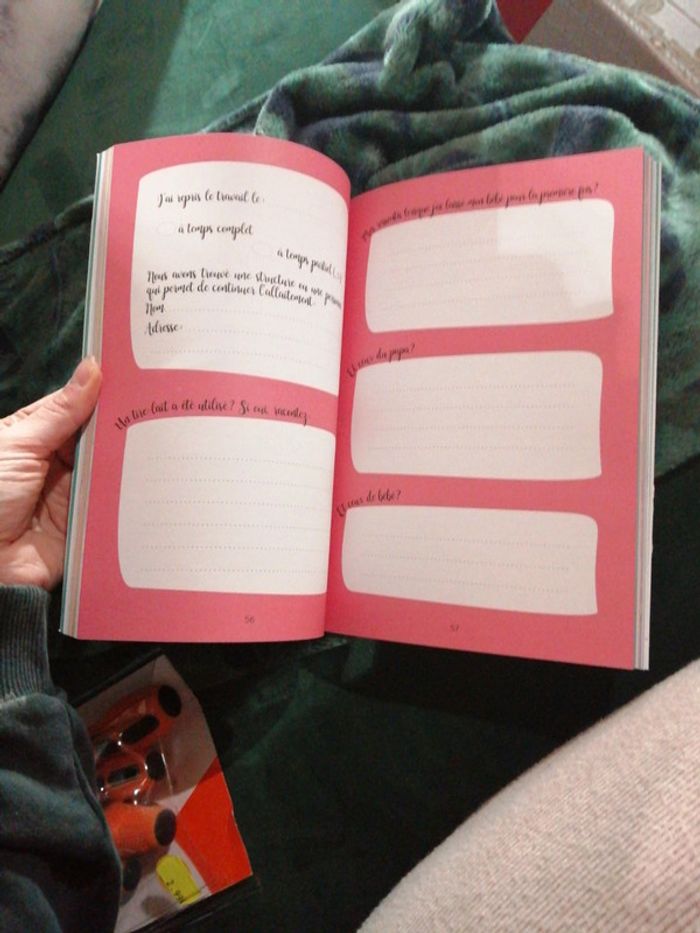 J'ai repris le travail le :
à temps complet
à temps partiel
Nous avons trouvé une structure ou une
qui permet de continuer l'allaitement.
Nom
Adresse :
Ma tire-lait a été utilisé ? Si oui, racontez :
56
lorsque j'ai laissé mon bébé pour la première fois ?
Et ceux du papa ?
Et ceux de bébé ?
57